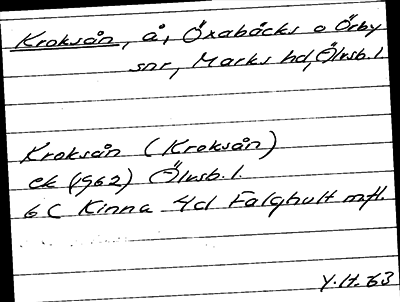 Kroksån, å, Öxabäcks o Örby
snr, Marks hd, Älvsb. l.
Kroksån (Kroksån)
ek (1962) Älvsb. l.
6 C Kinna 4d Falghult mfl.
Y. H. 63